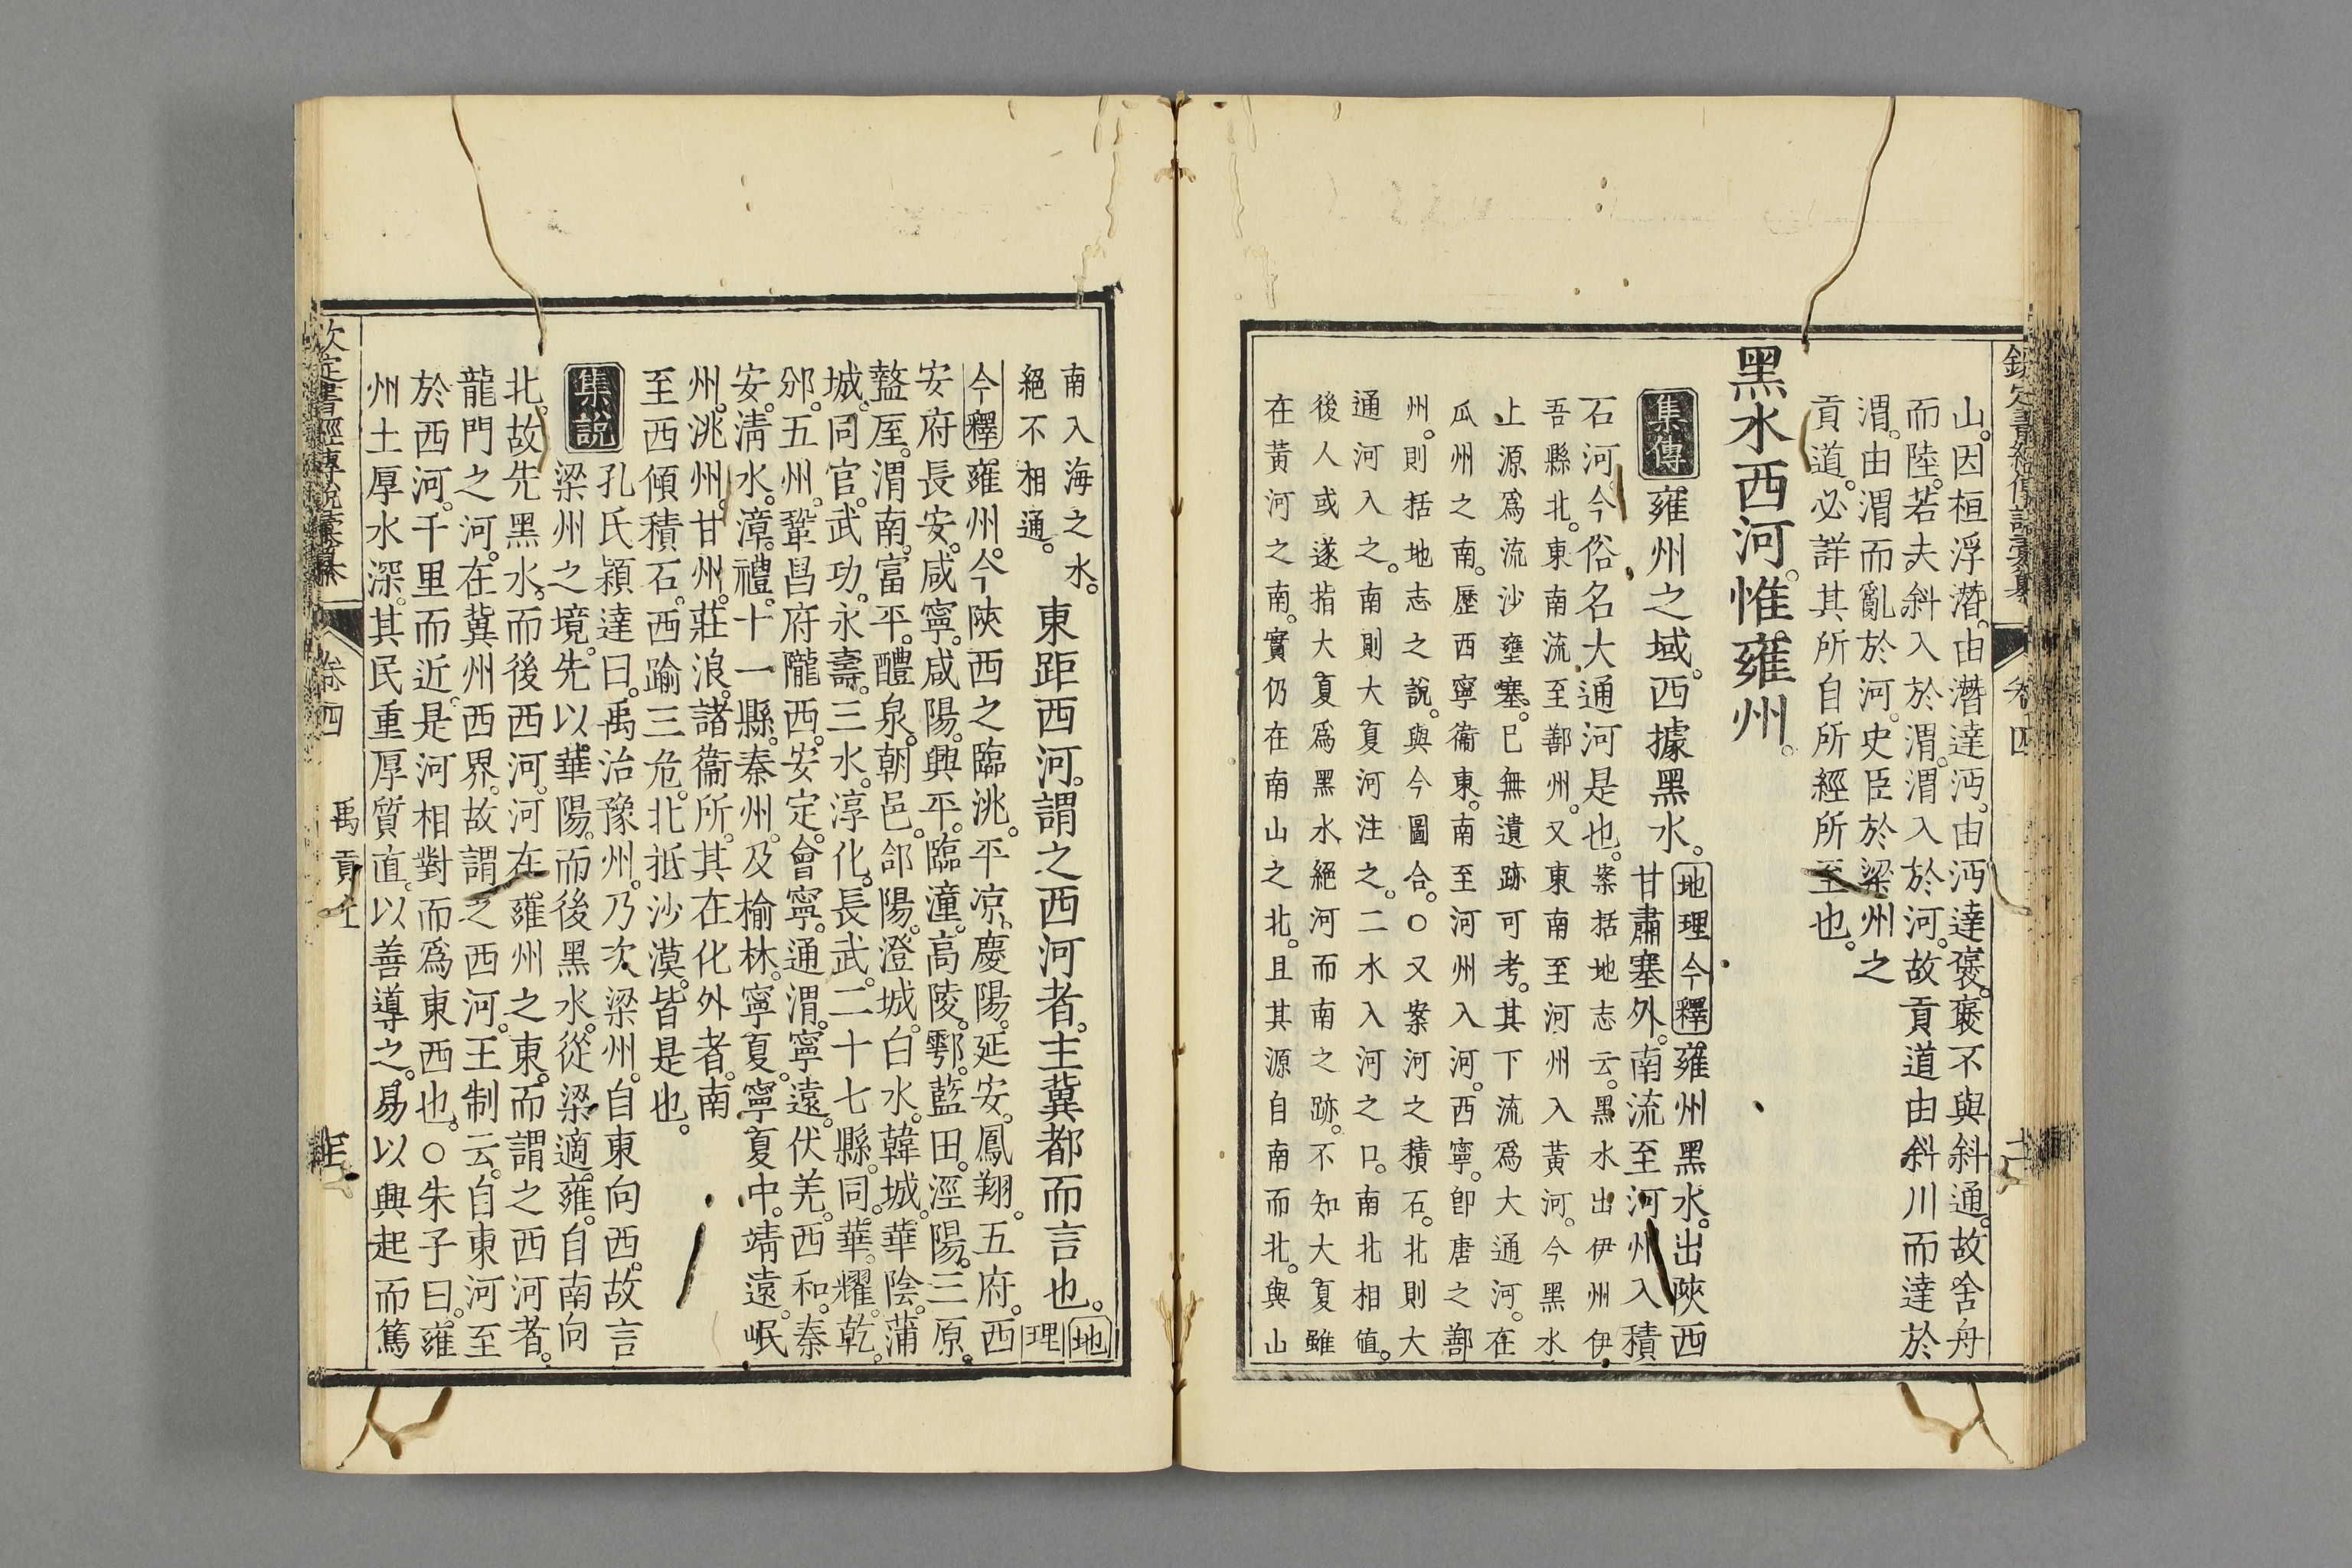 欽定書經傳說彙纂 卷四
山。因桓浮潛。由潛達沔。由沔達褒。褒不與斜通。故舍舟
而陸。若夫斜入於渭。渭入於河。故貢道由斜川而達於
渭。由渭而亂於河。史臣於梁州之
貢道。必詳其所自所經所至也。
黑水西河。惟雍州。
集傳 雍州之域。西據黑水。 地理今釋 雍州黑水。出陜西
甘肅塞外。南流至河州入積
石河。今俗名大通河是也。案括地志云。黑水出伊州伊
吾縣北。東南流至鄯州。又東南至河州入黃河。今黑水
上源爲流沙壅塞。已無遺跡可考。其下流爲大通河。在
瓜州之南。歷西寧衞東。南至河州入河。西寧。卽唐之鄯
州。則括地志之說。與今圖合。○又案河之積石。北則大
通河入之。南則大夏河注之。二水入河之口。南北相值。
後人或遂指大夏爲黑水絕河而南之跡。不知大夏雖
在黃河之南。實仍在南山之北。且其源自南而北。與山
南入海之水。
絕不相通。
東距西河。謂之西河者。主冀都而言也。 地
理
今釋 雍州。今陜西之臨洮。平凉。慶陽。延安。鳳翔。五府。西
安府長安。咸寧。咸陽。興平。臨潼。高陵。鄠。藍田。涇陽。三原。
盩厔。渭南。富平。醴泉。朝邑。郃陽。澄城。白水。韓城。華陰。蒲
城。同官。武功。永壽。三水。淳化。長武。二十七縣。同。華。耀。乾。
邠。五州。鞏昌府隴西。安定。會寧。通渭。寧遠。伏羌。西和。秦
安。淸水。漳。禮。十一縣。秦州。及榆林。寧夏。寧夏中。靖遠。岷
州。洮州。甘州。莊浪。諸衞所。其在化外者。南
至西傾積石。西踰三危。北抵沙漠。皆是也。
集說 孔氏穎達曰。禹治豫州。乃次梁州。自東向西。故言
梁州之境。先以華陽。而後黑水。從梁適雍。自南向
北。故先黑水。而後西河。河在雍州之東。而謂之西河者。
龍門之河。在冀州西界。故謂之西河。王制云。自東河至
於西河。千里而近。是河相對而爲東西也。○朱子曰。雍
州土厚水深。其民重厚質直。以善導之。易以興起而篤
欽定書經傳說彙纂 卷四 禹貢上